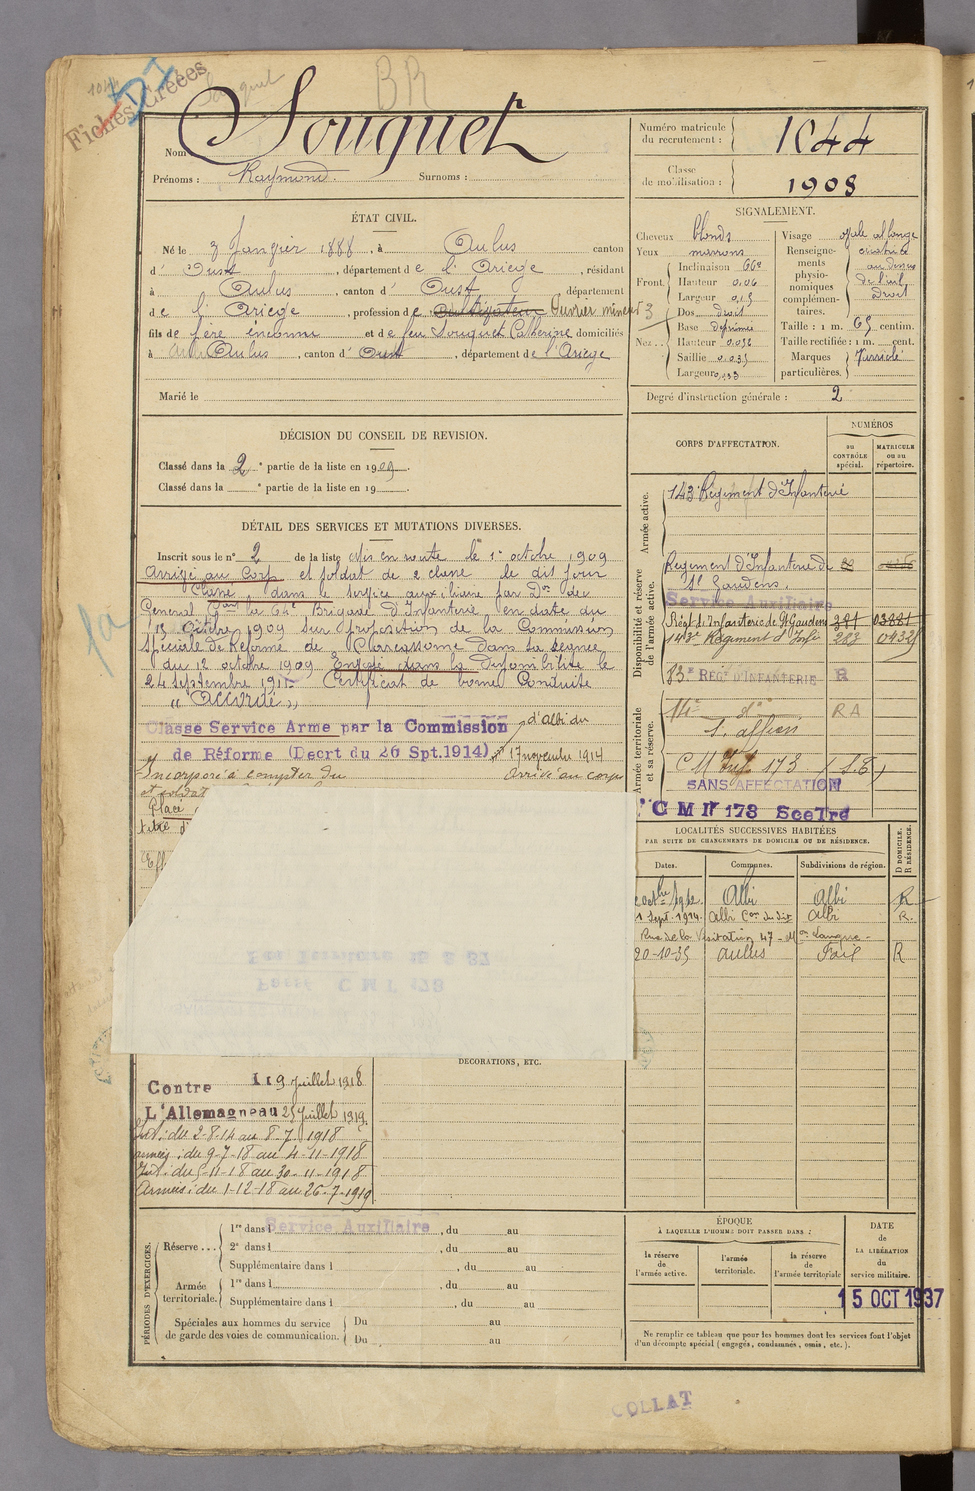 Fiches Créées
Souquet
BR
Nom Souquet
Prénoms : Raymond. Surnoms :
Numéro matricule du recrutement : 1044
Classe de mobilisation : 1908
ÉTAT CIVIL.
Né le 3 Janvier 1888, à Aulus canton
d' Oust, département de l'Ariège, résidant
à Aulus, canton d' Oust, département
de l'Ariège, profession de Cultivateur Ouvrier mineur
fils de père inconnu et de feu Souquet Catherine domiciliés
à Aulus, canton d' Oust, département de l'Ariège
Marié le
SIGNALEMENT.
Cheveux blonds
Yeux marrons
Front. Inclinaison
Hauteur 0,06
Largeur 0,15
Nez.. Dos droit
Base déprimée
Hauteur 0.056
Saillie 0.035
Largeur 0,033
Visage ovale allongé
Renseignements physionomiques complémentaires. cicatrice au dessus de l'œil Droit
Taille : 1 m. 65 centim.
Taille rectifiée : 1 m. cent.
Marques particulières.
Degré d'instruction générale : 2
DÉCISION DU CONSEIL DE REVISION.
Classé dans la 2e partie de la liste en 1909.
Classé dans la e partie de la liste en 19 .
DÉTAIL DES SERVICES ET MUTATIONS DIVERSES.
Inscrit sous le n° 2 de la liste Mis en route le 1er octobre 1909
Arrivé au Corps et soldat de 2e classe le dit jour
Classé dans le service auxiliaire par Don du
Général Comt la 64e Brigade d'Infanterie en date du
15 Octobre 1909 sur proposition de la Commission
Spéciale de Réforme de Carcassonne dans sa séance
du 12 octobre 1909. Envoyé dans la Disponibilité le
24 septembre 1911. Certificat de bonne Conduite
"Accordé"
Classe Service Arme par la Commission d'Albi du
de Réforme (Decrt du 26 Spt.1914) 17 novembre 1914
Incorporé à compter du Arrivé au corps
et soldat
Placé
CORPS D'AFFECTATION.
NUMÉROS
au CONTRÔLE spécial.
MATRICULE ou au répertoire.
Armée active.
143e Régiment d'Infanterie
Disponibilité et réserve de l'armée active.
Régiment d'Infanterie de
St Gaudens.
Service Auxiliaire
Régt d'Infanterie de St Gaudens 381 03881
143e Régiment d'Infie 223
83e REGt D'INFANTERIE R
Armée territoriale et sa réserve.
14e do RA
S. affon
CM Infie 173 (S.E)
SANS AFFECTATION
C M Ir 173
LOCALITÉS SUCCESSIVES HABITÉES
PAR SUITE DE CHANGEMENTS DE DOMICILE OU DE RÉSIDENCE.
Dates. Communes. Subdivisions de région. D DOMICILE. R RÉSIDENCE.
2 octbre 1912 Albi Albi R
1 Sept. 1914. Albi Albi R.
Rue de la Visitation 47 -
20-10-35 Aulus Foix R
DÉCORATIONS, ETC.
Contre 9 Juillet 1918
L'Allemagne au 25 Juillet 1919.
Int : du 2-8-14 au 8-7-1918
armées : du 9-7-18 au 4-11-1918
Int : du 5-11-18 au 30-11-1918
Armées : du 1-12-18 au 26-7-1919
PÉRIODES D'EXERCICES.
Réserve... 1re dans l Service Auxiliaire, du au
2e dans l , du au
Supplémentaire dans l , du au
Armée territoriale. 1re dans l , du au
Supplémentaire dans l , du au
Spéciales aux hommes du service de garde des voies de communication. Du au
Du au
ÉPOQUE
À LAQUELLE L'HOMME DOIT PASSER DANS :
la réserve de l'armée active.
l'armée territoriale.
la réserve de l'armée territoriale
DATE de LA LIBÉRATION du service militaire.
15 OCT 1937
Ne remplir ce tableau que pour les hommes dont les services font l'objet
d'un décompte spécial (engagés, condamnés, omis, etc.).
COLLAT